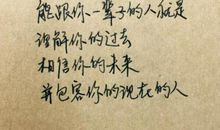 能跟你一辈子的人就是
理解你的过去
相信你的未来
并包容你的现在的人